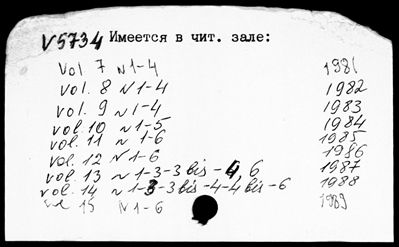 V5734 Имеется в чит. зале:
Vol. 7 N 1-4 1981
vol. 8 N 1-4 1982
vol. 9 N 1-4 1983
vol. 10 N 1-5 1984
vol. 11 N 1-6 1985
vol. 12 N 1-6 1986
vol. 13 N 1-3-3 bis - 4, 6 1987
vol. 14 N 1-3-3 bis -4-4 bis -6 1988
vol 15 N 1-6 1989